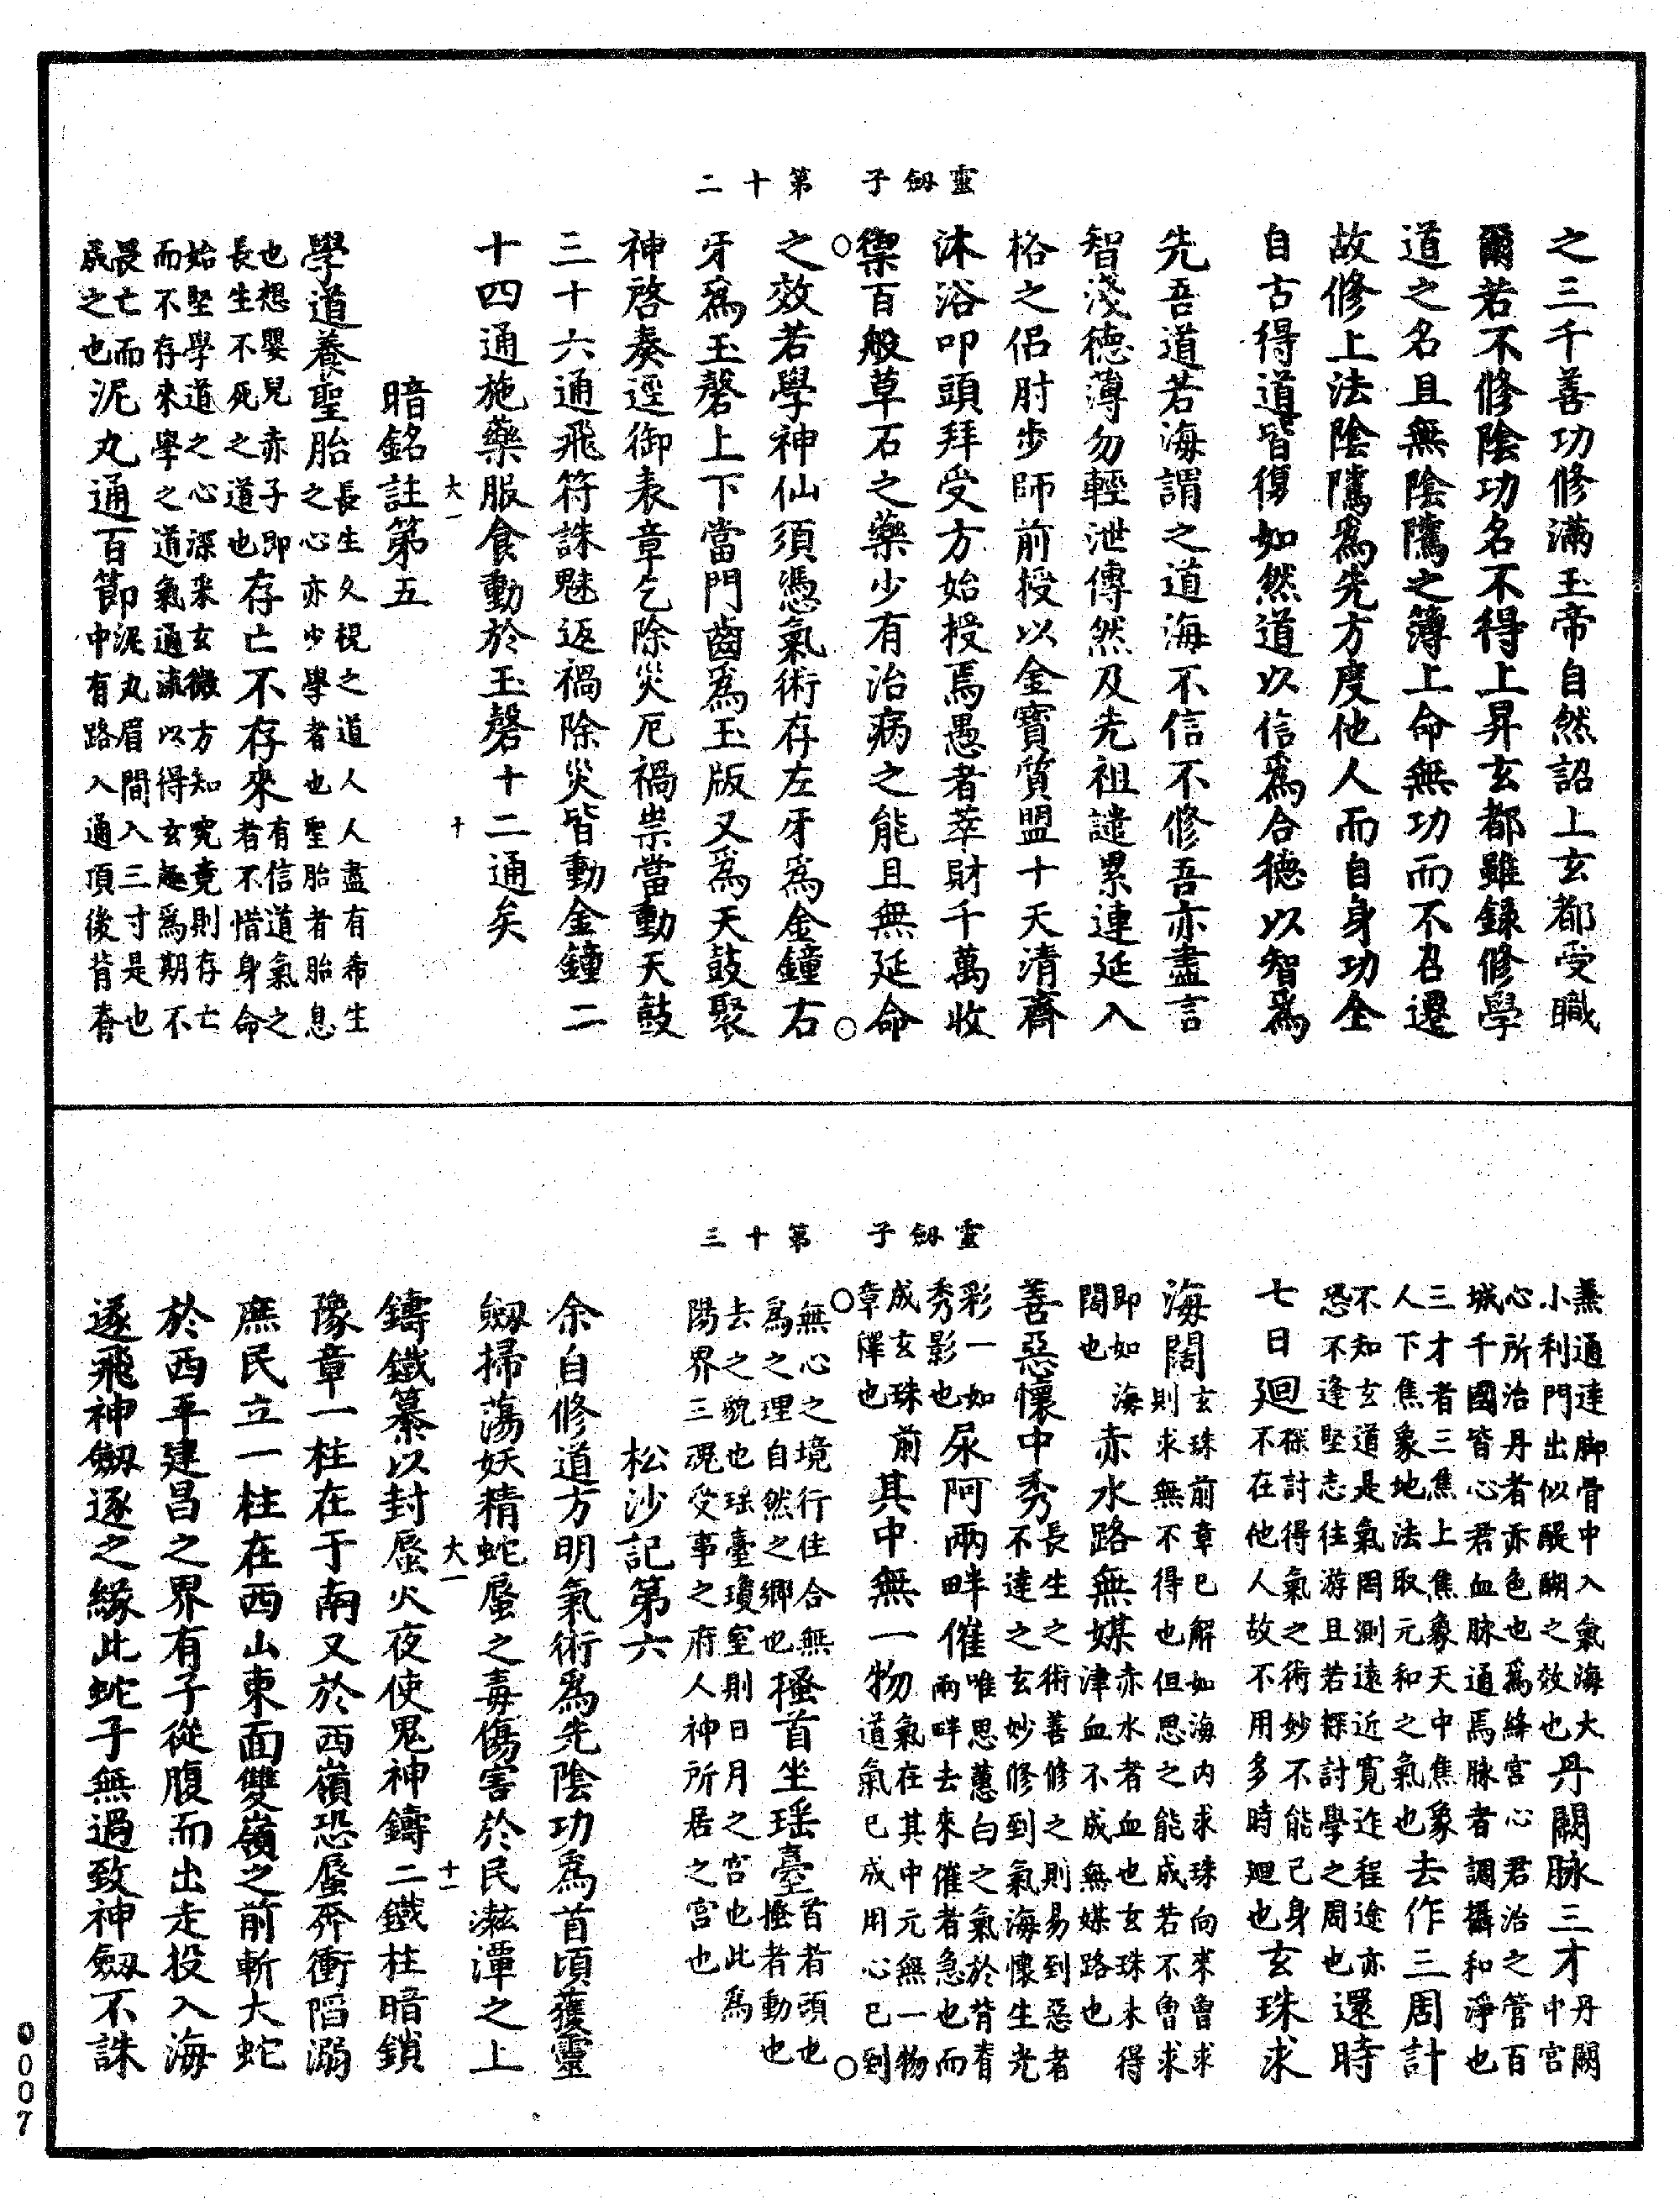 靈劔子　第十二
之三千善功修滿玉帝自然詔上玄都受職
爾若不修陰功名不得上昇玄都雖録修學
道之名且無陰隲之簿上命無功而不召遷
故修上法陰隲爲先方度他人而自身功全
自古得道皆傷如然道以信爲合德以智爲
先吾道若海謂之道海不信不修吾亦盡言
智淺德薄勿輕泄傳然及先祖譴累連延入
格之侣肘步師前授以金寶質盟十天清齋
沐浴叩頭拜受方始授焉愚者萃財千萬收
禦百般草石之藥少有治病之能且無延命
之效若學神仙須憑氣術存左牙爲金鐘右
牙爲玉磬上下當門齒爲玉版又爲天鼓聚
神啓奏逕御表章乞除災厄禍祟當動天鼓
三十六通飛符誅魅返禍除災皆動金鐘二
十四通施藥服食動於玉磬十二通矣
暗銘註第五
大一　十
學道養聖胎
長生久視之道人人盡有希生
之心亦少學者也聖胎者胎息
也想嬰兒赤子即
長生不死之道也
存亡不存來
有信道氣之
者不惜身命
始堅學道之心深来玄微方知究竟則存亡
而不存來學之道氣通流以得玄趣爲期不
畏亡而
成之也
泥丸通百節
泥丸眉間入三寸是也
中有路入通頂後背脊
靈劔子　第十三
燕通達脚骨中入氣海大
小利門出似醍醐之效也
丹闕脉三才
丹闕
中宫
心所治丹者亦色也爲絳宫心君治之管百
城千國皆心君血脉通焉脉者調攝和淨也
三才者三焦上焦象天中焦象
人下焦象地法取元和之氣也
去作三周計
不知玄道是氣罔測遠近寬迮程途亦
恐不逢堅志往游且若探討學之周也
還時
七日廻
探討得氣之術妙不能己身
不在他人故不用多時廻也
玄珠求
海闊
玄珠前章已解如海内求珠向來曾求
則求無不得也但思之能成若不曾求
即如海
闊也
赤水路無媒
赤水者血也玄珠未得
津血不成無媒路也
善惡懷中秀
長生之術善修之則易到惡者
不達之玄妙修到氣海懷生光
彩一如
秀影也
尿阿兩畔催
唯思蔥白之氣於背脊
兩畔去來催者急也而
成玄珠前
章釋也
其中無一物
氣在其中元無一物
道氣已成用心已到
無心之境行住合無
爲之理自然之鄉也
搔首坐瑶臺
首者頭也
搔者動也
去之貌也瑶臺瓊室則日月之宫也此爲
陽界三魂受事之府人神所居之宫也
松沙記第六
余自修道方明氣術爲先陰功爲首頃獲靈
劔掃蕩妖精蛇蜃之毒傷害於民濨潭之上
大一　十一
鑄鐵纂以封蜃火夜使鬼神鑄二鐵柱暗鎖
豫章一柱在于南又於西嶺恐蜃奔衝陷溺
庶民立一柱在西山東面雙嶺之前斬大蛇
於西平建昌之界有子從腹而出走投入海
遂飛神劔逐之緣此蛇子無過致神劔不誅
0007